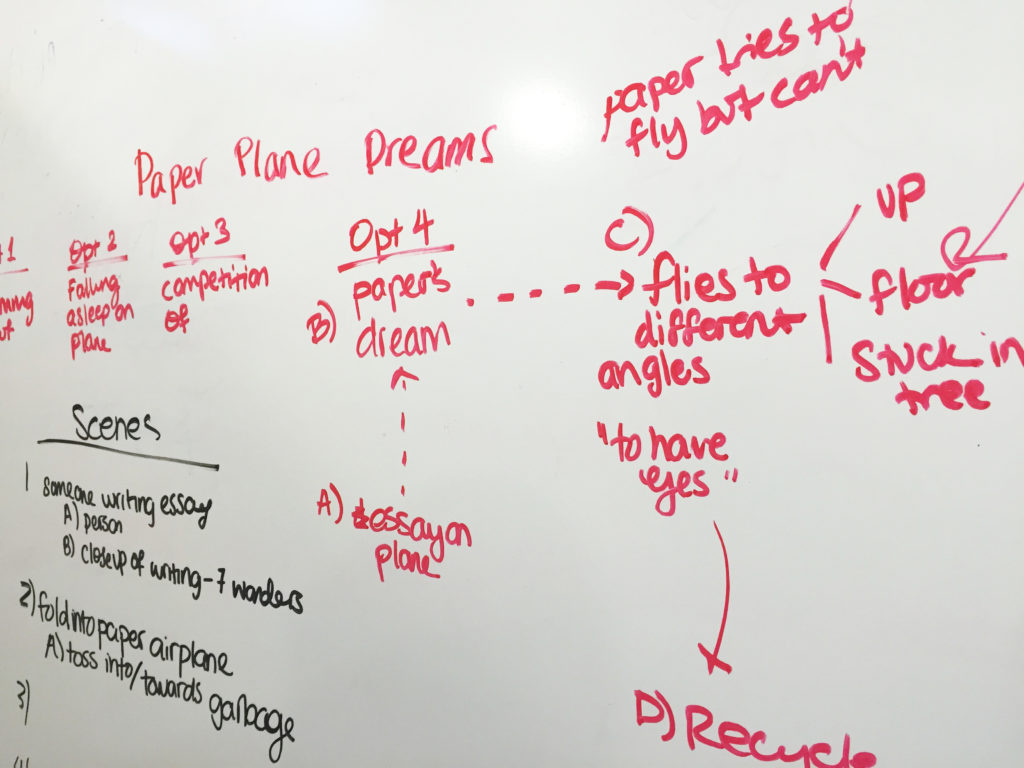 paper tries to
fly but can't
Paper Plane Dreams
Opt 2
Falling
asleep on
plane
Opt 3
competition
of
Opt 4
B) paper's
dream
A) essay on
plane
C)
flies to
different
angles
"to have
eyes"
UP
floor
Stuck in
tree
D) Recycle
Scenes
1 someone writing essay
A) person
B) closeup of writing - 7 wonders
2) fold into paper airplane
A) toss into/towards garbage
3)